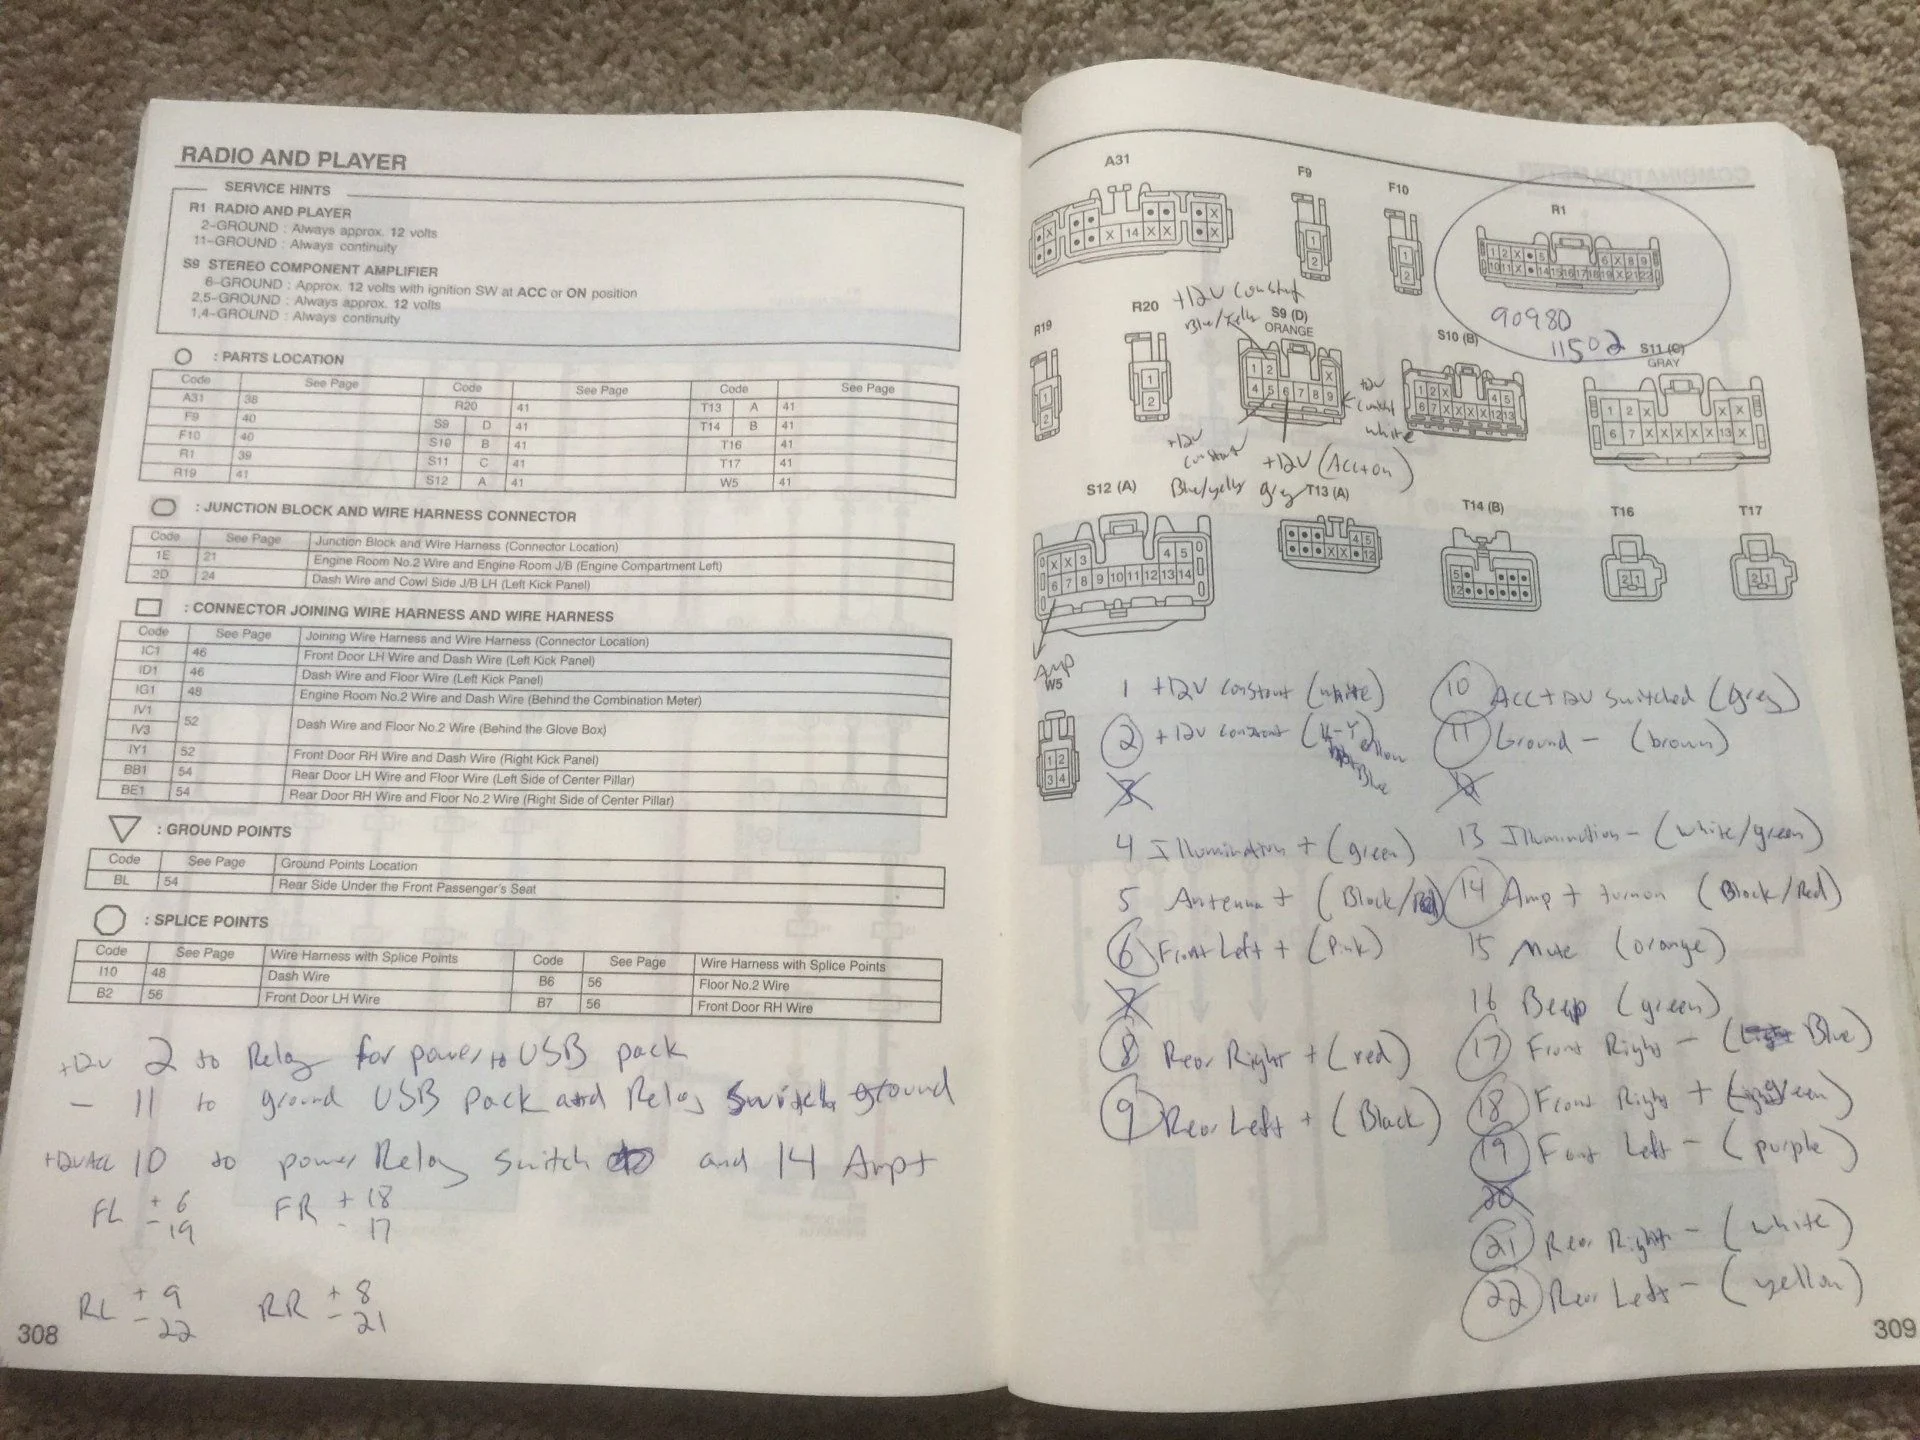 RADIO AND PLAYER
SERVICE HINTS
R1 RADIO AND PLAYER
2-GROUND : Always approx. 12 volts
11-GROUND : Always continuity
S9 STEREO COMPONENT AMPLIFIER
6-GROUND : Approx. 12 volts with ignition SW at ACC or ON position
2,5-GROUND : Always approx. 12 volts
1,4-GROUND : Always continuity
: PARTS LOCATION
Code See Page Code See Page Code See Page
A31 38 R20 41 T13 A 41
F9 40 S9 D 41 T14 B 41
F10 40 S10 B 41 T16 41
R1 39 S11 C 41 T17 41
R19 41 S12 A 41 W5 41
: JUNCTION BLOCK AND WIRE HARNESS CONNECTOR
Code See Page Junction Block and Wire Harness (Connector Location)
1E 21 Engine Room No.2 Wire and Engine Room J/B (Engine Compartment Left)
2D 24 Dash Wire and Cowl Side J/B LH (Left Kick Panel)
: CONNECTOR JOINING WIRE HARNESS AND WIRE HARNESS
Code See Page Joining Wire Harness and Wire Harness (Connector Location)
IC1 46 Front Door LH Wire and Dash Wire (Left Kick Panel)
ID1 46 Dash Wire and Floor Wire (Left Kick Panel)
IG1 48 Engine Room No.2 Wire and Dash Wire (Behind the Combination Meter)
IV1
IV3 52 Dash Wire and Floor No.2 Wire (Behind the Glove Box)
IY1 52 Front Door RH Wire and Dash Wire (Right Kick Panel)
BB1 54 Rear Door LH Wire and Floor Wire (Left Side of Center Pillar)
BE1 54 Rear Door RH Wire and Floor No.2 Wire (Right Side of Center Pillar)
: GROUND POINTS
Code See Page Ground Points Location
BL 54 Rear Side Under the Front Passenger's Seat
: SPLICE POINTS
Code See Page Wire Harness with Splice Points Code See Page Wire Harness with Splice Points
I10 48 Dash Wire B6 56 Floor No.2 Wire
B2 56 Front Door LH Wire B7 56 Front Door RH Wire
+12v 2 to Relay for power to USB pack
- 11 to ground USB pack and Relay Switch ground
+12v Acc 10 to power Relay switch and 14 Amp +
FL + 6 FR + 18
- 19 - 17
RL + 9 RR + 8
- 22 - 21
308
A31 F9 F10 R1
X X 14 X X X X
1
2
1
2
1 2 X 5 6 X 8 9
10 11 X 14 15 16 17 18 19 X 21 22
90980
11502
R19 R20 +12V constant
Blue/Yello
S9 (D)
ORANGE
S10 (B) S11 (C)
GRAY
1
2
1
2
1 2 X
4 5 6 7 8 9
1 2 X 4 5
6 7 X X X X 12 13
1 2 X X X
6 7 X X X X X 13 X
+12v
constant
white
+12v
constant
Blue/yello
+12V (Acc+on)
grey
S12 (A) T13 (A) T14 (B) T16 T17
X X 3 4 5
6 7 8 9 10 11 12 13 14
4 5
X X 12
5
12
2 1
2 1
Amp
W5
1 2
3 4
1 +12V constant (white)
2 +12V constant
3
4 Illumination + (green)
5 Antenna + (Black/Red)
6 Front Left + (Pink)
7
8 Rear Right + (red)
9 Rear Left + (Black)
10 ACC +12V Switched (Grey)
11 Ground - (brown)
12
13 Illumination - (white/green)
14 Amp + turnon (Black/Red)
15 Mute (orange)
16 Beep (green)
17 Front Right - (Blue)
18 Front Right + (green)
19 Front Left - (purple)
20
21 Rear Right - (white)
22 Rear Left - (yellow)
309